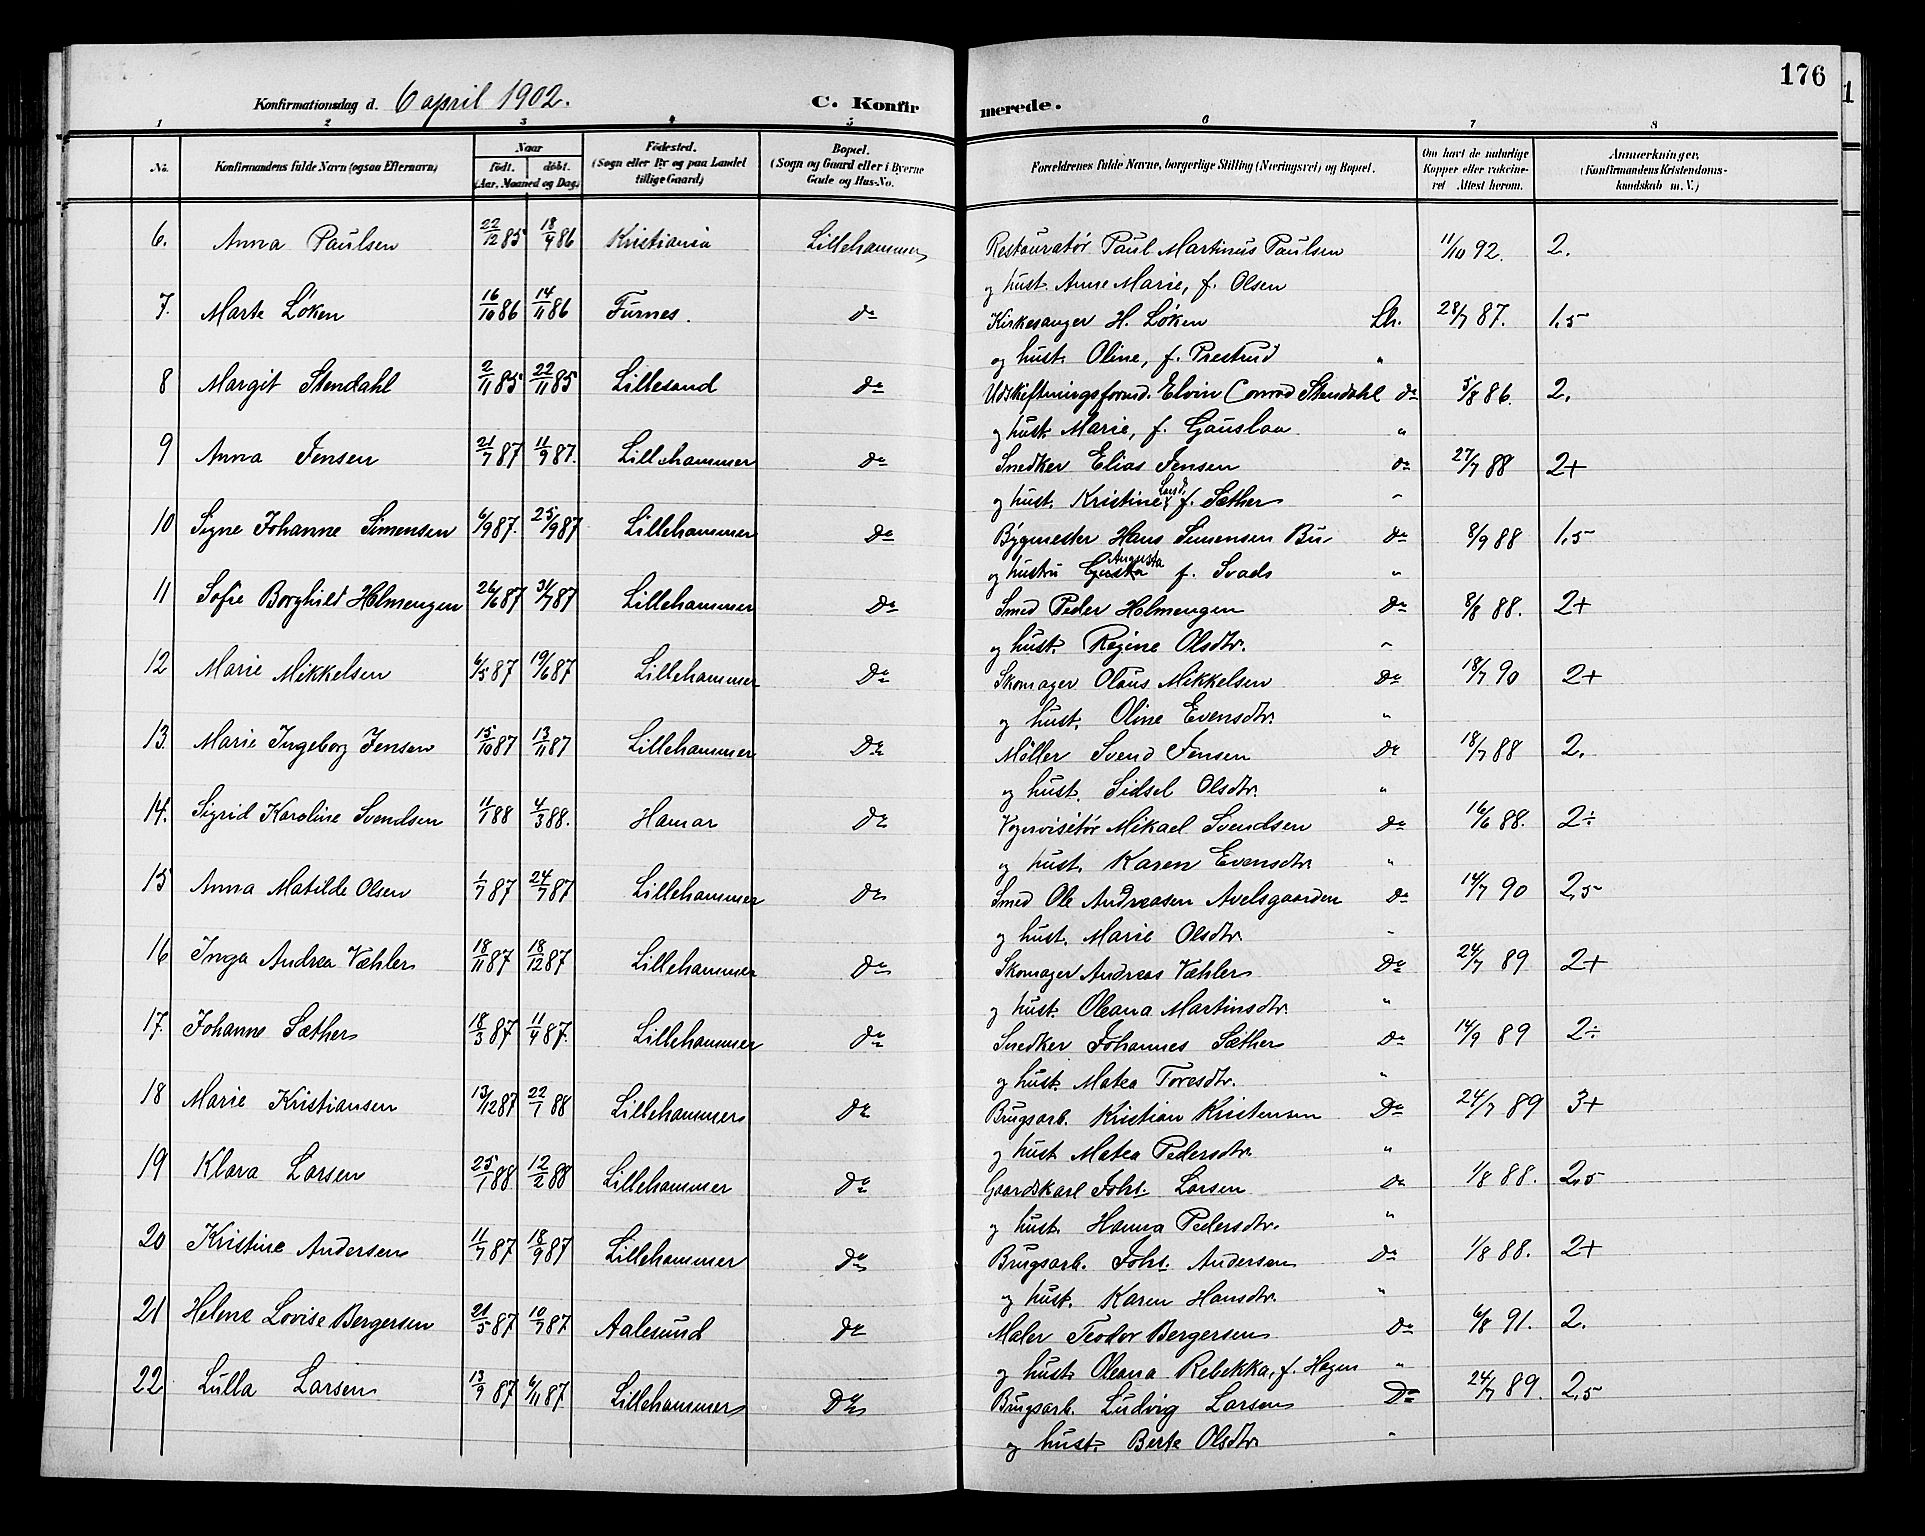 176
Konfirmationsdag d. 6 april 1902. C. Konfirmerede.
1 2 3 4 5 6 7 8
No. Konfirmandens fulde Navn (ogsaa Efternavn) Naar födt. döbt. (Aar, Maaned og Dag) Födested. (Sogn eller By og paa Landet tillige Gaard) Bopæl. (Sogn og Gaard eller i Byerne Gade og Hus-No. Forældrenes fulde Navne, borgerlige Stilling (Næringsvei) og Bopæl. Om havt de naturlige Kopper eller vakcineret Attest herom. Anmærkninger, (Konfirmandens Kristendomskundskab m. V.)
6. Anna Paulsen 22/12 85 18/4 86 Kristiania Lillehammer Restauratør Paul Martinus Paulsen 11/10 92. 2.
og hust. Anne Marie, f. Olsen
7. Marte Løken 16/10 86 14/11 86 Furnes. do Kirkesanger H. Løken Lh. 28/7 87. 1,5
og hust. Oline, f. Prestrud "
8 Margit Stendahl 2/11 85 22/11 85 Lillesand do Udskiftningsformd. Elvin Conrod Stendahl do 5/8 86. 2.
og hust. Marie, f. Gauslaa "
9 Anna Jensen 21/7 87 11/9 87. Lillehammer do Snedker Elias Jensen do 27/7 88 2+
og hust. Kristine Larsd. f. Sæther "
10 Signe Johanne Simensen 6/9 87. 25/9 87 Lillehammer do Bygmester Hans Simensen Bu do 8/9 88 1,5
og hustru Gusta Augusta f. Svads "
11 Sofie Borghild Holmengen 26/6 87 31/7 87 Lillehammer Do Smed Peder Holmengen Do 8/8 88. 2+
og hust. Regine Olsdtr. "
12 Marie Mikkelsen 6/5 87 19/6 87 Lillehammer Do Skomager Olaus Mikkelsen Do 18/7 90 2+
og hust. Oline Evensdtr. "
13. Marie Ingeborg Jensen 15/10 87 13/11 87 Lillehammer Do Møller Svend Jensen Do 18/7 88 2.
og hust. Sidsel Olsdtr. "
14. Sigrid Karoline Svendsen 11/1 88 4/3 88. Hamar do Vognvisitør Mikael Svendsen Do 16/6 88. 2÷
og hust. Karen Evensdtr. "
15 Anna Matilde Olsen 1/7 87 24/7 87 Lillehammer do Smed Ole Andreasen Avelsgaarden do 14/7 90 2,5
og hust. Marie Olsdtr. "
16 Inga Andrea Væhler 18/11 87 18/12 87 Lillehammer do Skomager Andreas Væhler Do 24/7 89 2+
og hust. Oleana Martinsdtr. "
17. Johanne Sæther 18/3 87 11/4 87. Lillehammer do Snedker Johannes Sæther Do 14/9 89 2÷
og hust. Matea Toresdtr. "
18 Marie Kristiansen 13/12 87 22/1 88 Lillehammer do Brugsarb. Kristian Kristensen Do 24/7 89 3+
og hust. Matea Pedersdtr. "
19 Klara Larsen 25/1 88 12/2 88 Lillehammer do Gaardskarl Johs. Larsen do 1/8 88. 2,5
og hust. Hanna Pedersdtr. "
20 Kristine Andersen 11/7 87 18/9 87 Lillehammer do Brugsarb. Johs. Andersen do 1/8 88. 2+
og hust. Karen Hansdtr. "
21 Helene Lovise Bergersen 21/5 87 10/7 87 Aalesund do Maler Teodor Bergersen Do 6/8 91. 2.
og hust. Oleana Rebekka, f. Hagen "
22 Lulla Larsen 13/9 87 6/11 87 Lillehammer Do Brugsarb. Ludvig Larsen Do 24/7 89. 2,5
og hust. Berte Olsdtr. "